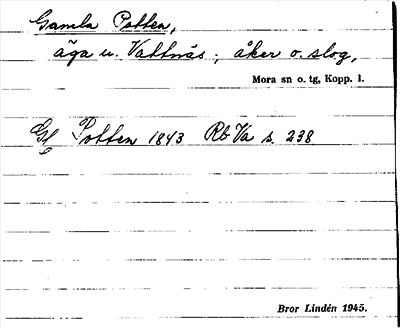 Gamla Potten,
äga u. Vattnäs; åker o. slog,
Mora sn o. tg, Kopp. l.
Gl Potten 1843 Rb Va s. 238
Bror Lindén 1945.